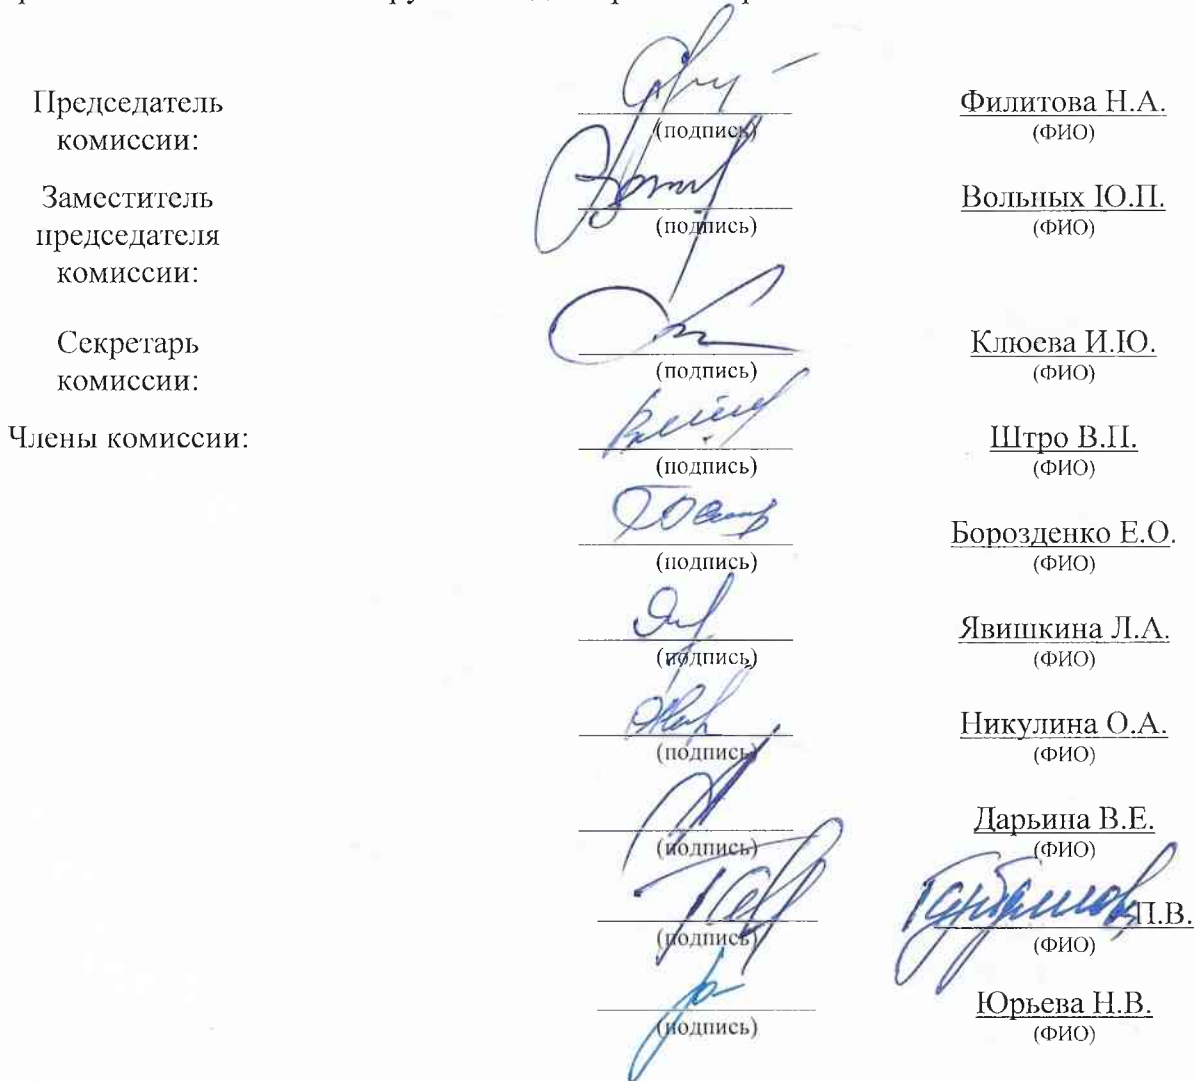 Председатель
комиссии:
(подпись)
Филитова Н.А.
(ФИО)
Заместитель
председателя
комиссии:
(подпись)
Вольных Ю.П.
(ФИО)
Секретарь
комиссии:
(подпись)
Клюева И.Ю.
(ФИО)
Члены комиссии:
(подпись)
Штро В.П.
(ФИО)
(подпись)
Борозденко Е.О.
(ФИО)
(подпись)
Явишкина Л.А.
(ФИО)
(подпись)
Никулина О.А.
(ФИО)
(подпись)
Дарьина В.Е.
(ФИО)
(подпись)
П.В.
(ФИО)
(подпись)
Юрьева Н.В.
(ФИО)